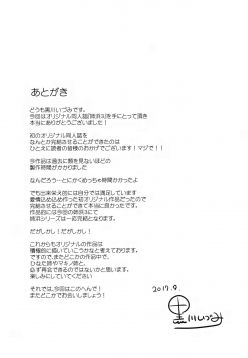 あとがき
どうも黒川いづみです。
今回はオリジナル同人誌『姉浜3』を手にとって頂き
本当にありがとうございました！
初のオリジナル同人誌を
なんとか完結させることができたのは
ひとえに読者の皆様のおかげでございます！マジで！！
今作品は過去に類を見ないほどの
製作時間がかかりました
なんだろうーとにかくめっちゃ時間かかったよ
でも出来栄え的には自分では満足しています
愛情込め込め作った初オリジナル作品だったので
完結させることができて本当に良かったです。
作品的には今回の姉浜3にて
姉浜シリーズは一応完結となります。
だがしかし！だがしかし！
これからもオリジナルの作品は
積極的に描いていこうかなと考えております。
ですので、またどこかの作品中で、
ひなた姉やマキノ姉と、
必ず再会できるのではないかと思います。
楽しみにしていてください
それでは、今回はこのへんで！
またどこかでお会いしましょう！
2017.8.
黒川いづみ